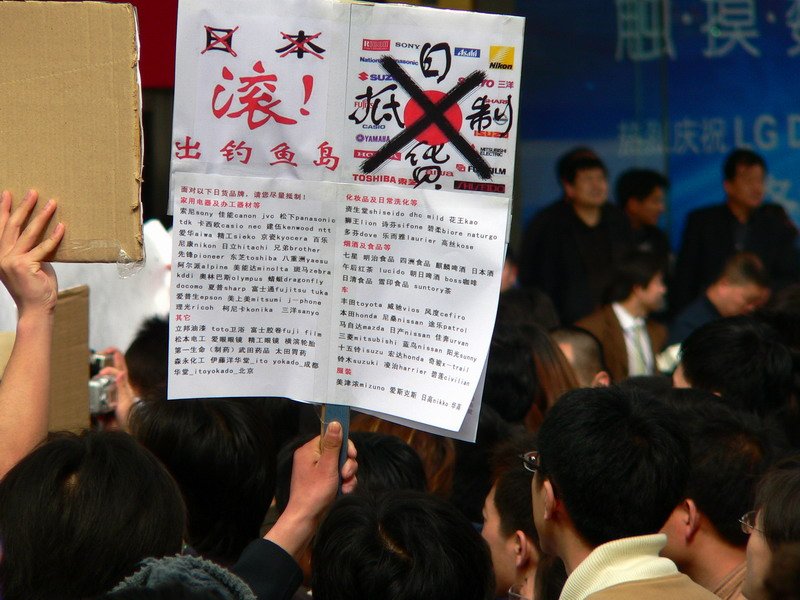 日本
滚！
出钓鱼岛
SONY
Asahi
Nikon
National
Panasonic
SUZ
三洋
CASIO
YAMAHA
MITSUBISHI ELECTRIC
FUJIFILM
TOSHIBA
SHISEIDO
抵制日货
面对以下日货品牌，请您尽量抵制！
家用电器及办工器材等
索尼sony 佳能canon jvc 松下panasonic
tdk 卡西欧casio nec 建伍kenwood ntt
爱华aiwa 精工sieko 京瓷kyocera 百乐
尼康nikon 日立hitachi 兄弟brother
先锋pioneer 东芝toshiba 八重洲yaesu
阿尔派alpine 美能达minolta 斑马zebra
kddi 奥林巴斯olympus 蜻蜓dragonfly
docomo 夏普sharp 富士通fujitsu tuka
爱普生epson 美上美mitsumi j-phone
理光ricoh 柯尼卡konika 三洋sanyo
其它
立邦油漆 toto卫浴 富士胶卷fuji film
松本电工 爱眼眼镜 精工眼镜 横滨轮胎
第一生命（制药）武田药品 太田胃药
森永化工 伊藤洋华堂_ito yokado_成都
华堂_itoyokado_北京
化妆品及日常洗化等
资生堂shiseido dhc mild 花王kao
狮王lion 诗芬sifone 碧柔biore naturgo
多芬dove 乐而雅laurier 高丝kose
烟酒及食品等
七星 明治食品 四洲食品 麒麟啤酒 日本酒
午后红茶 lucido 朝日啤酒 boss咖啡
日清食品 雪印食品 suntory茶
车
丰田toyota 威驰vios 风度cefiro
本田honda 尼桑nissan 途乐patrol
马自达mazda 日产nissan 佳奔urvan
三菱mitsubishi 蓝鸟nissan 阳光sunny
十五铃isuzu 宏达honda 奇骏x-trail
铃木suzuki 凌治harrier 碧莲civilian
服装
美津浓mizuno 爱斯克斯 日高nikko 华高
触·摸·
庆祝LG